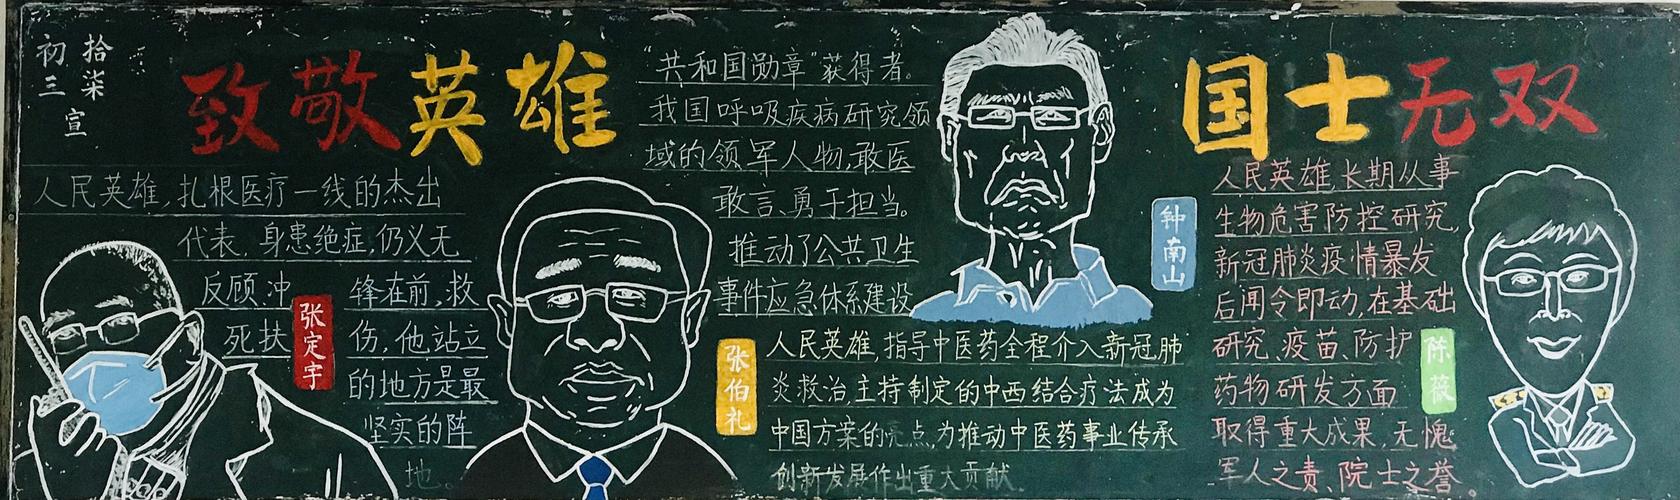 初三
拾柒
宣
致敬英雄
国士无双
人民英雄,扎根医疗一线的杰出
代表,身患绝症,仍义无
反顾,冲锋在前,救
死扶伤,他站立
的地方是最
坚实的阵
地。
张定宇
"共和国勋章"获得者。
我国呼吸疾病研究领
域的领军人物,敢医
敢言、勇于担当。
推动了公共卫生
事件应急体系建设
钟南山
张伯礼
人民英雄,指导中医药全程介入新冠肺
炎救治,主持制定的中西结合疗法成为
中国方案的亮点,为推动中医药事业传承
创新发展作出重大贡献。
人民英雄,长期从事
生物危害防控研究,
新冠肺炎疫情暴发
后闻令即动,在基础
研究、疫苗、防护
药物研发方面
取得重大成果,无愧
军人之责、院士之誉。
陈薇